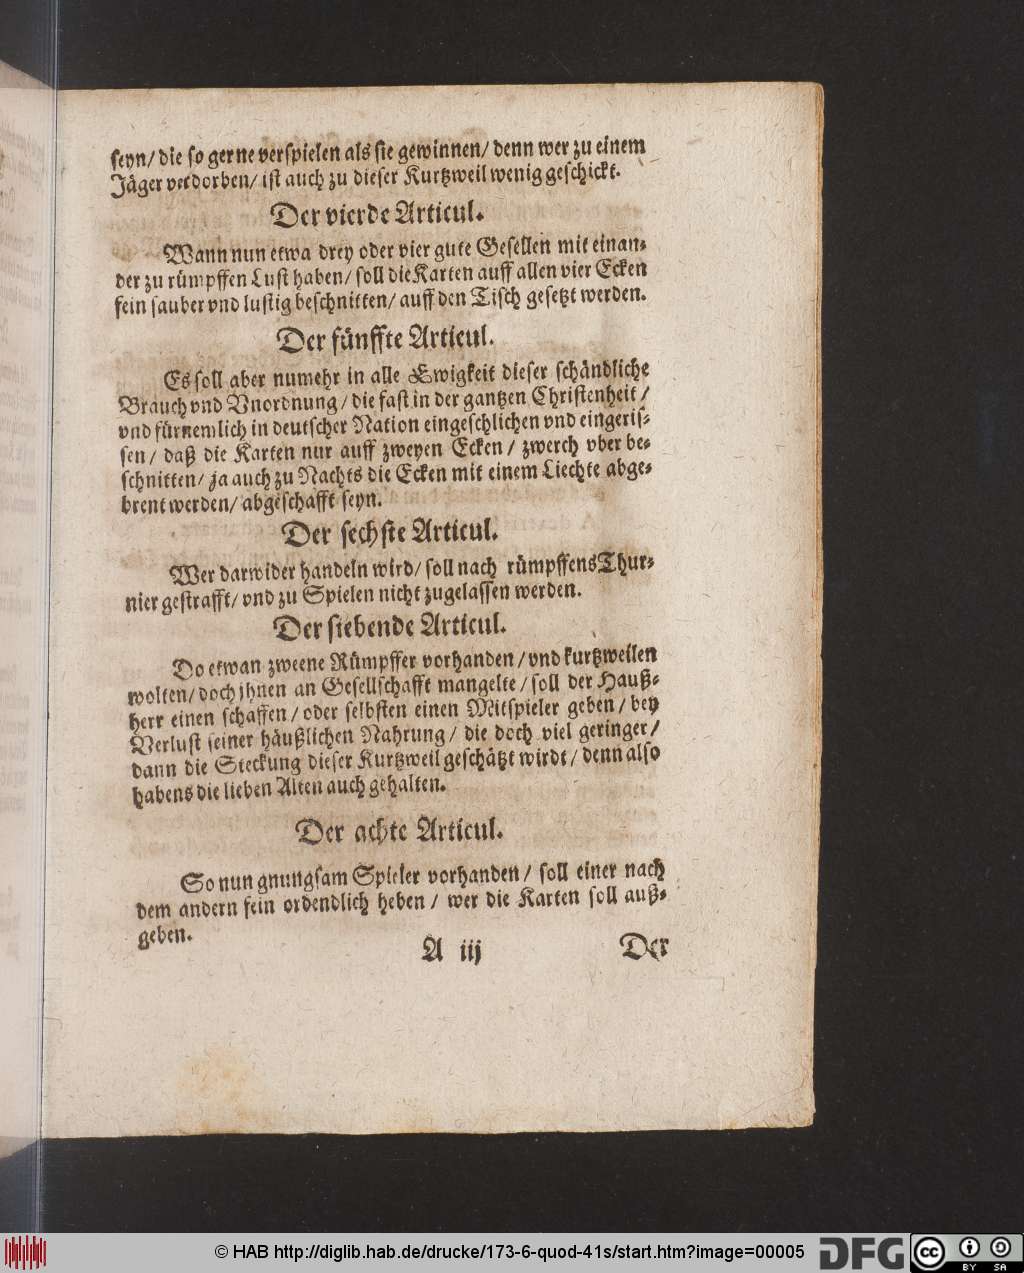 seyn/ die so gerne verspielen als sie gewinnen/ denn wer zu einem
Jäger verdorben/ ist auch zu dieser Kurtzweil wenig geschickt.
Der vierde Articul.
Wann nun etwa drey oder vier gute Gesellen mit einan-
der zu rümpffen Lust haben/ soll die Karten auff allen vier Ecken
fein sauber vnd lustig beschnitten/ auff den Tisch gesetzt werden.
Der fünffte Articul.
Es soll aber numehr in alle Ewigkeit dieser schändliche
Brauch vnd Vnordnung/ die fast in der gantzen Christenheit/
vnd fürnemlich in deutscher Nation eingeschlichen vnd eingeris-
sen/ daß die Karten nur auff zweyen Ecken/ zwerch vber be-
schnitten/ ja auch zu Nachts die Ecken mit einem Liechte abge-
brent werden/ abgeschafft seyn.
Der sechste Articul.
Wer darwider handeln wird/ soll nach rümpffens Thur-
nier gestrafft/ vnd zu Spielen nicht zugelassen werden.
Der siebende Articul.
Do etwan zweene Rümpffer vorhanden/ vnd kurtzweilen
wolten/ doch jhnen an Gesellschafft mangelte/ soll der Hauß-
herr einen schaffen/ oder selbsten einen Mitspieler geben/ bey
Verlust seiner häußlichen Nahrung/ die doch viel geringer/
dann die Steckung dieser Kurtzweil geschätzt wirdt/ denn also
habens die lieben Alten auch gehalten.
Der achte Articul.
So nun gnungsam Spieler vorhanden/ soll einer nach
dem andern fein ordendlich heben/ wer die Karten soll auß-
geben.
A iij Der
© HAB http://diglib.hab.de/drucke/173-6-quod-41s/start.htm?image=00005
DFG
cc
BY SA